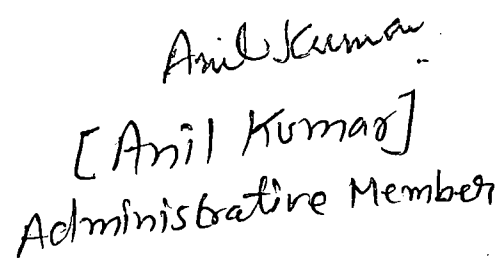 Anil Kumar
[Anil Kumar]
Administrative Member